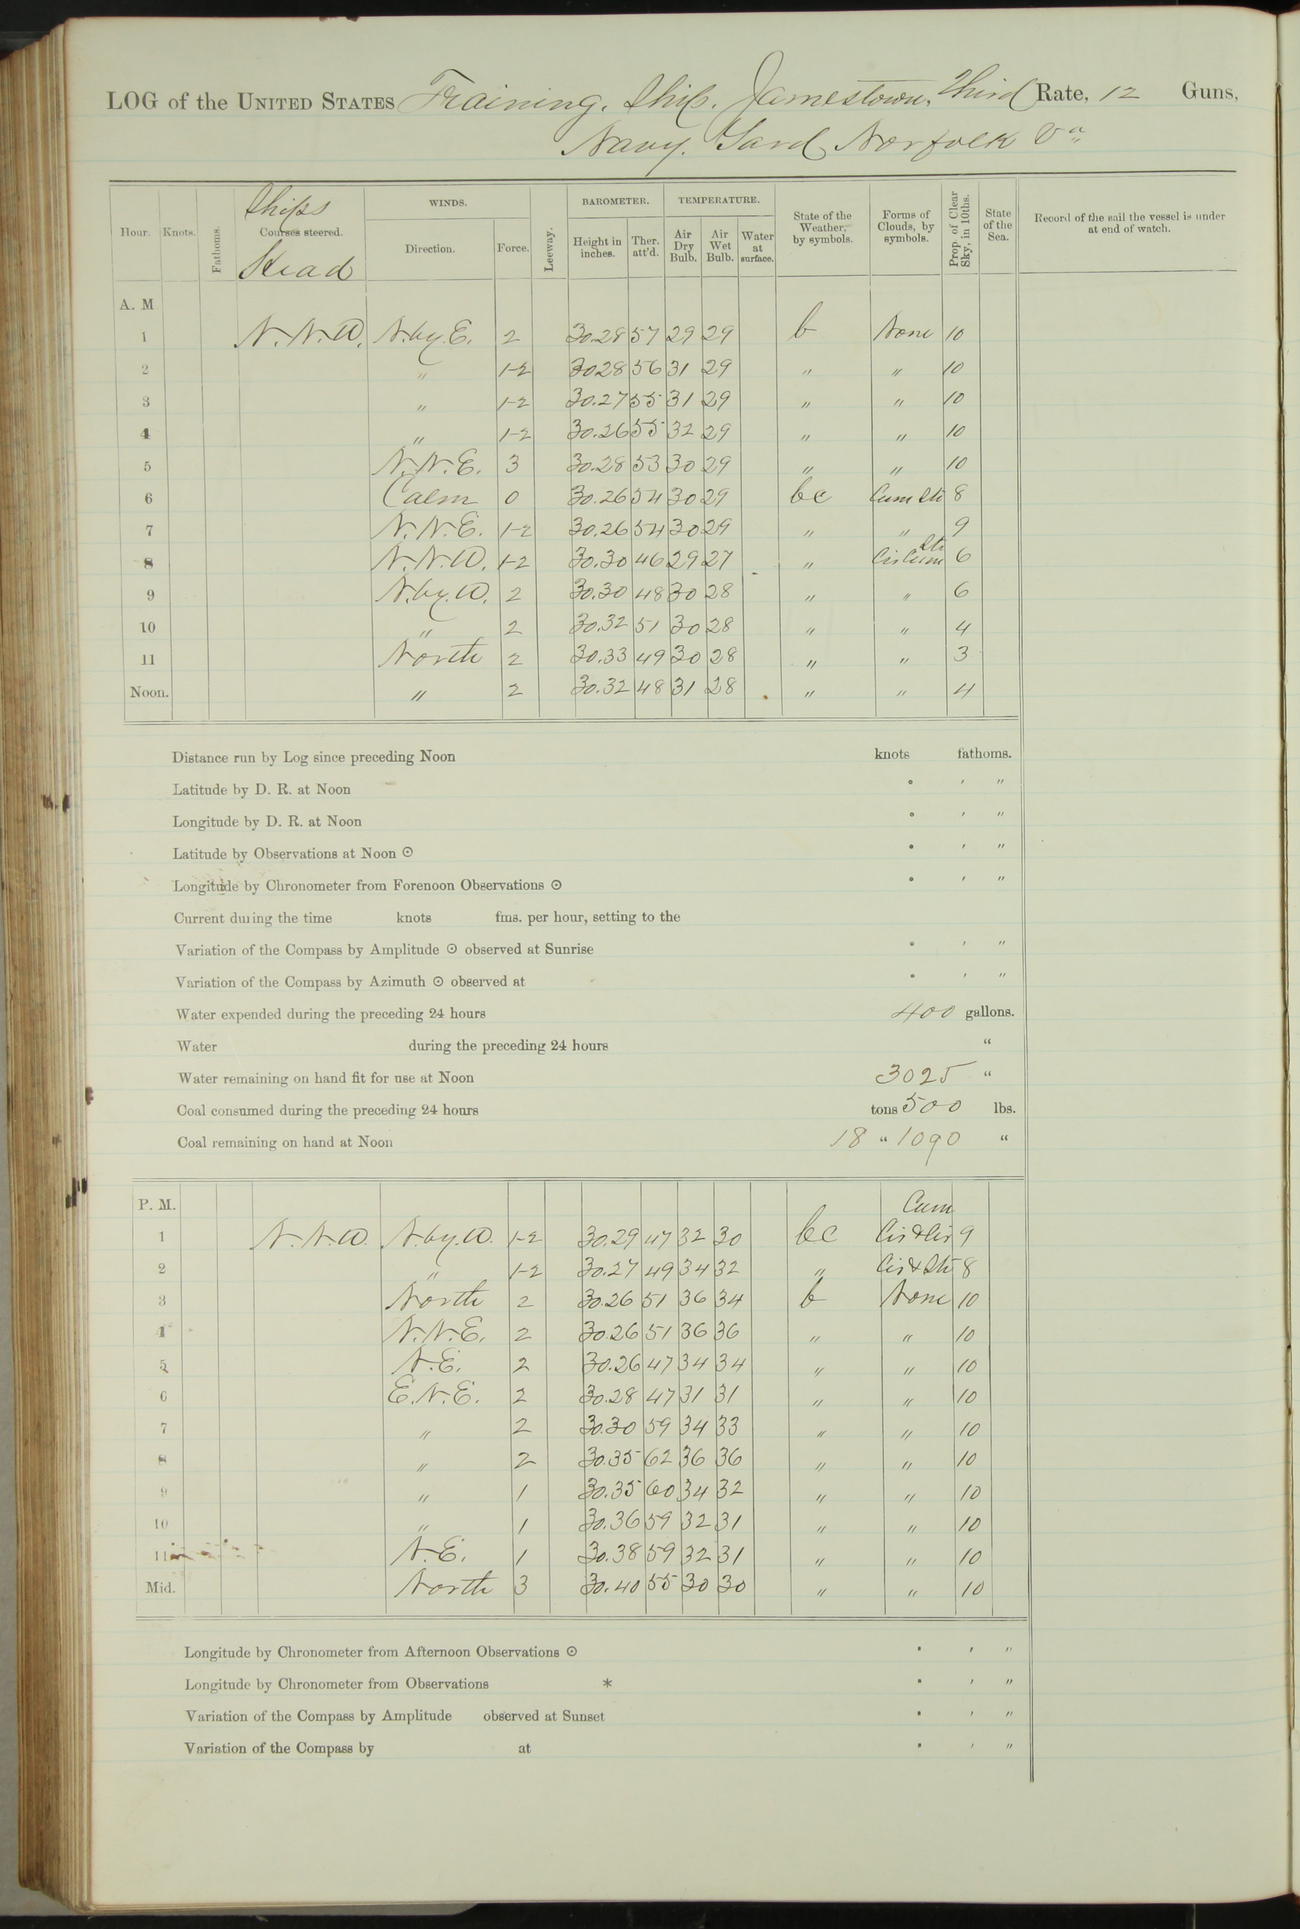 LOG of the UNITED STATES Training. Ship. Jamestown, Third Rate, 12 Guns,
Navy. Yard Norfolk Va
Hour. Knots. Fathoms. Ships Courses steered. Head WINDS. Direction. Force. Leeway. BAROMETER. Height in inches. Ther. att'd. TEMPERATURE. Air Dry Bulb. Air Wet Bulb. Water at surface. State of the Weather, by symbols. Forms of Clouds, by symbols. Prop. of Clear Sky, in 10ths. State of the Sea. Record of the sail the vessel is under at end of watch.
A. M
1 N.N.W. N.by.E. 2 30.28 57 29 29 b None 10
2 " 1-2 30 28 56 31 29 " " 10
3 " 1-2 30.27 55 31 29 " " 10
4 " 1-2 30.26 55 32 29 " " 10
5 N.N.E. 3 30.28 53 30 29 " " 10
6 Calm 0 30.26 54 30 29 bc Cum Str 8
7 N.N.E. 1-2 30.26 54 30 29 " " 9
8 N.N.W. 1-2 30.30 46 29 27 " Cir Cum Str 6
9 N.by.W. 2 30.30 48 30 28 " " 6
10 " 2 30.32 51 30 28 " " 4
11 North 2 30.33 49 30 28 " " 3
Noon. " 2 30.32 48 31 28 " " 4
Distance run by Log since preceding Noon knots fathoms.
Latitude by D. R. at Noon ° ' "
Longitude by D. R. at Noon ° ' "
Latitude by Observations at Noon ⊙ ° ' "
Longitude by Chronometer from Forenoon Observations ⊙ ° ' "
Current during the time knots fms. per hour, setting to the
Variation of the Compass by Amplitude ⊙ observed at Sunrise ° ' "
Variation of the Compass by Azimuth ⊙ observed at ° ' "
Water expended during the preceding 24 hours 400 gallons.
Water during the preceding 24 hours "
Water remaining on hand fit for use at Noon 3025 "
Coal consumed during the preceding 24 hours tons 500 lbs.
Coal remaining on hand at Noon 18 " 1090 "
P. M.
1 N.N.W. N.by.W. 1-2 30.29 47 32 30 bc Cum Cir & Cir 9
2 " 1-2 30.27 49 34 32 " Cir & Str 8
3 North 2 30.26 51 36 34 b None 10
4 N.N.E. 2 30.26 51 36 36 " " 10
5 N.E. 2 30.26 47 34 34 " " 10
6 E.N.E. 2 30.28 47 31 31 " " 10
7 " 2 30.30 59 34 33 " " 10
8 " 2 30.35 62 36 36 " " 10
9 " 1 30.35 60 34 32 " " 10
10 " 1 30.36 59 32 31 " " 10
11 N.E. 1 30.38 59 32 31 " " 10
Mid. North 3 30.40 55 30 30 " " 10
Longitude by Chronometer from Afternoon Observations ⊙ ° ' "
Longitude by Chronometer from Observations * ° ' "
Variation of the Compass by Amplitude observed at Sunset ° ' "
Variation of the Compass by at ° ' "